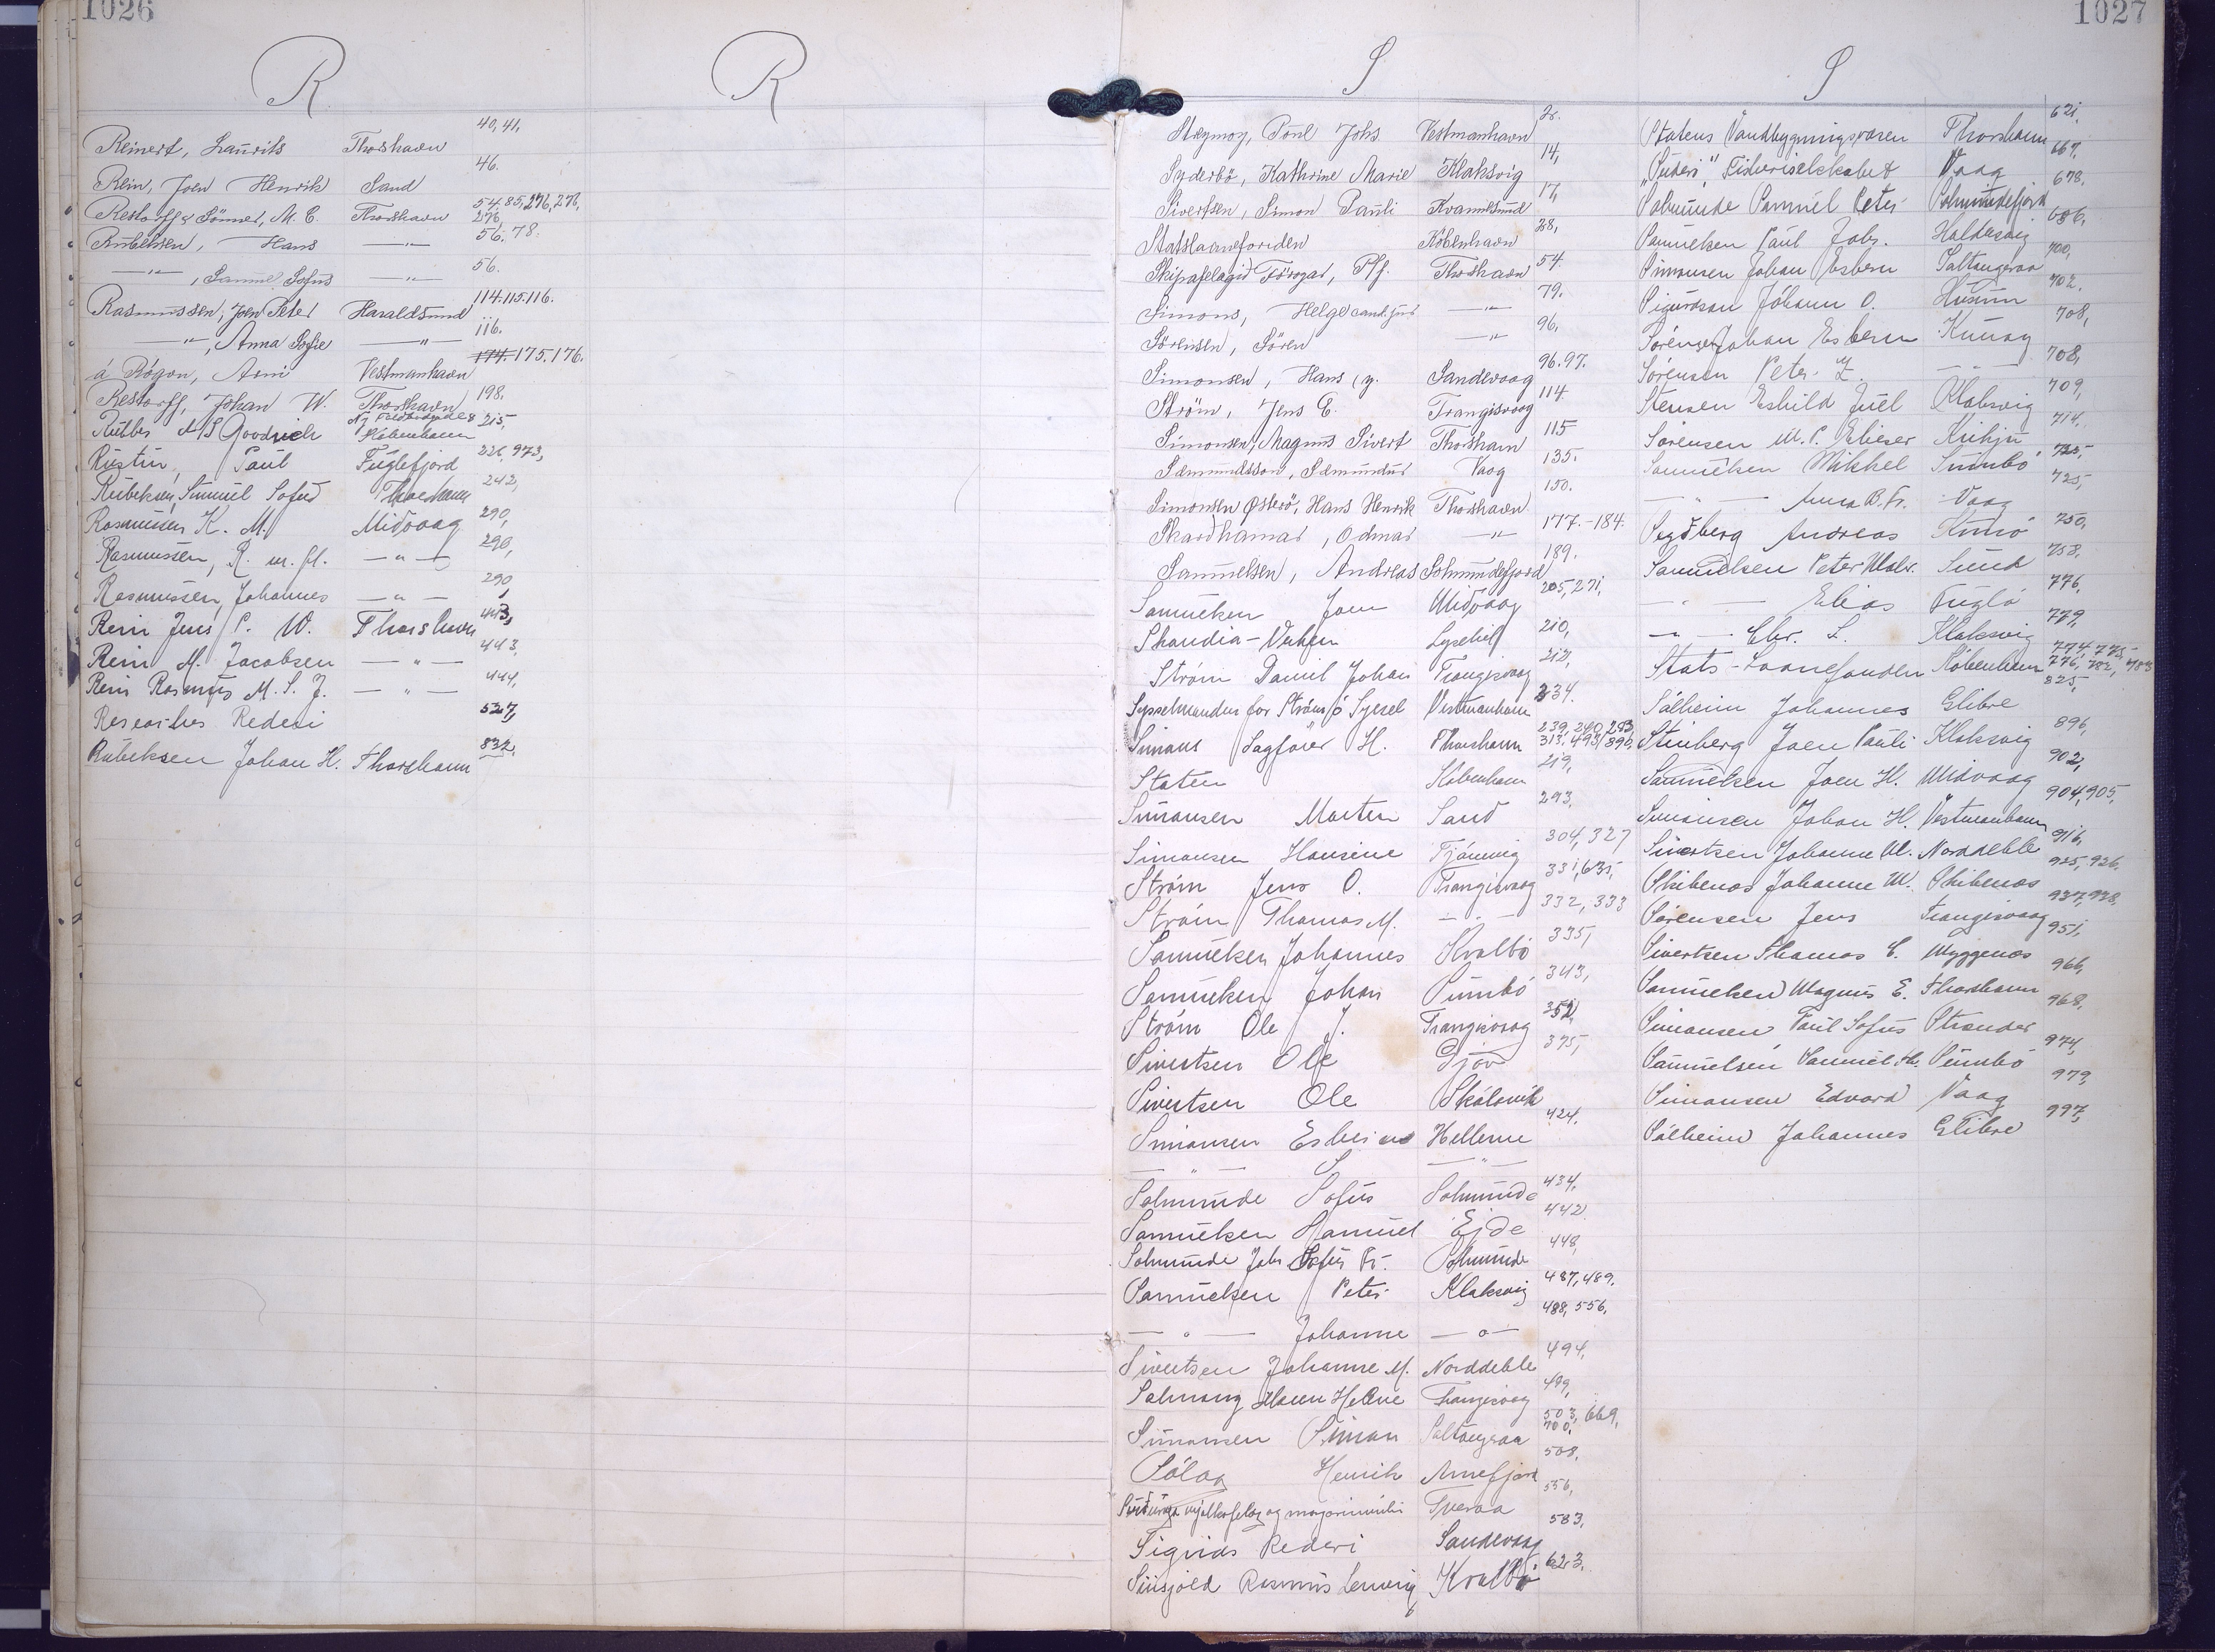 1026
R
R
Reinert, Laurits Thorshavn 40, 41,
Rein, Joen Henrik Sand 46.
Restorff & Sönner, M. C. Thorshavn 54. 85, 276, 276, 276,
Rubeksen, Hans —"— 56. 78.
—"—, Samuel Sofus —"— 56.
Rasmussen, Joen Peter Haraldsund 114. 115. 116.
—"—, Anna Sofie —"— 116.
á Rógvu, Arni Vestmanhavn 174. 175. 176.
Restorff, Johan W. Thorshavn 198.
A/S Goodrich København 215,
Paul Fuglefjord 226, 973,
Rubeksen, Samuel Sofus Thorshavn 242,
Rasmussen K. M. Midvaag 290,
Rasmussen, R. m. fl. —"— 290,
Rasmussen, Johannes —"— 290,
Rein Jens P. W. Thorshavn 443,
Rein M. Jacobsen —"— 443,
Rein Rasmus M. S. J. —"— 444,
Research Rederi 527,
Rubeksen Johan H. Thorshavn 832,
1027
S
S
Stegmoy, Poul Johs Vestmanhavn 2.
Syderbö, Kathrine Marie Klaksvig 14,
Sivertsen, Simon Pauli Kvannesund 17,
Statslaanefonden København 28,
Skipafelagid Föroyar, P/f. Thorshavn 54.
Simons, Helge cand. jur —"— 79.
Sörensen, Sören —"— 96.
Simonsen, Hans Sandevaag 96. 97.
Ström, Jens E. Trangisvaag 114
Simonsen, Magnus Sivert Thorshavn 115
Sæmundsson, Sæmundur Vaag 135.
Simonsen Østerö, Hans Henrik Thorshavn 150.
Skardhamar, Odmar —"— 177.-184.
Samuelsen, Andreas Solmundefjord 189.
Samuelsen Joen Midvaag 205, 271,
Skandia-Verken Lysekil 210,
Ström Daniel Johan Trangisvaag 212,
Sysselmanden for Strömö Syssel Vestmanhavn 234.
Simons Sagförer H. Thorshavn 239, 240, 293, 313, 493, 890,
Staten København 219,
Simonsen Morten Sand 293,
Simonsen Hansine Tjørnevig 304, 327
Ström Jens O. Trangisvaag 331, 635,
Ström Thomas M. —"— 332, 333
Samuelsen Johannes Kvalbö 335,
Samuelsen Johan Sumbö 343,
Ström Ole J. Trangisvaag 352,
Sivertsen Ole Gjov 375,
Sivertsen Ole Skálavík
Simonsen Esbern Hellerne 424.
—"— S —"—
Solmunde Sofus Solmunde 434,
Samuelsen Hanniel Ejde 442
Solmunde Johs Sofus Fr. Solmunde 448,
Samuelsen Peter Klaksvig 487, 489.
—"— Johanne —"— 488, 556,
Sivertsen Johanne M. Norddeble 494,
Maren Helene Trangisvaag 499,
Simonsen Simon Saltangraa 503, 669, 700,
Sólaa Henrik Arnefjord 508,
Suduroya mjolkafelag og Tveraa 556,
Rederi Sandevaag 583,
Rasmus Kvalbö 623,
Statens Vandbygningsvæsen Thorshavn 621,
"Suderi" Fiskeriselskabet Vaag 667,
Solmunde Samuel Peter Solmundefjord 678,
Samuelsen Paul Johs. Haldersvig 686,
Simonsen Johan Esbern Saltangeraa 700,
Sigurdson Jóhann O. Husum 702.
Sörensen Johan Esbern Kunoy 708,
Sörensen Peter Z. —"— 708,
Stensen Eshild Juel Klaksvig 709,
Sörensen M. P. Elieser Kirkju 714,
Samuelsen Mikkel Sumbö 725,
—"— Anna B. Fr. Vaag 725,
Andreas Kunö 750,
Samuelsen Peter Sund 758,
—"— Elias Fuglö 776,
—"— Chr. L. Klaksvig 779,
Stats-Laanefonden København 774, 775, 776, 782, 783
Sólheim Johannes Glibre 825,
Stenberg Joen Pauli Klaksvig 896,
Samuelsen Joen H. Midvaag 902,
Simonsen Johan H. Vestmanhavn 904, 905,
Sivertsen Johanne M. Norddeble 916,
Skibenæs Johanne M. Skibenæs 925, 926,
Sörensen Jens Trangisvaag 937, 938,
Sivertsen Thomas C. Myggenæs 951,
Samuelsen Magnus E. Thorshavn 966,
Simonsen Paul Sofus Strander 968,
Samuelsen Samuel Sumbö 974,
Simonsen Edvard Vaag 979,
Sólheim Johannes Glibre 997,